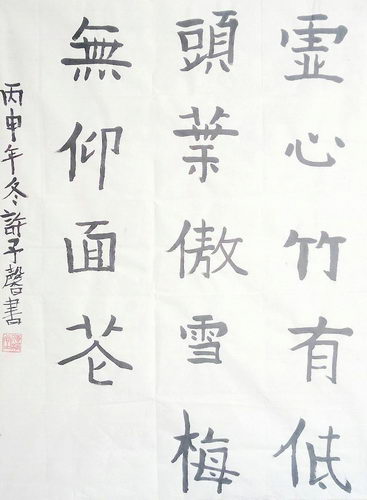 虛心竹有低
頭葉傲雪梅
無仰面花
丙申年冬許子馨書